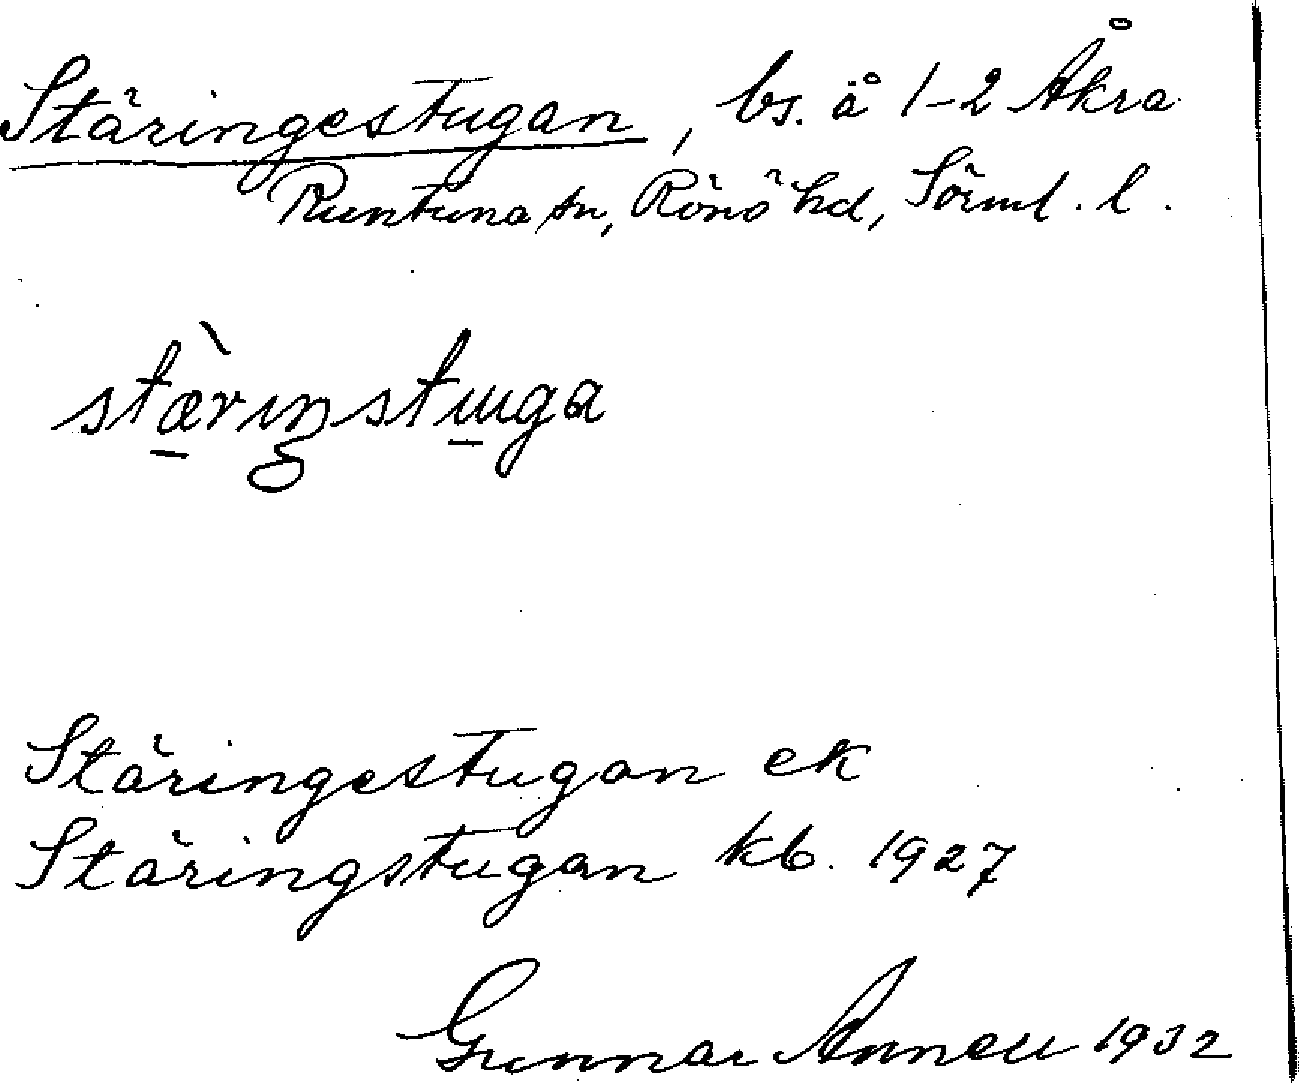 Stäringestugan, bs. å 1-2 Åkra
Runtuna sn, Rönö hd, Söml. l.
stæ̀rıŋstɯga
Stäringestugan ek
Stäringstugan kb. 1927
Gunnar Annell 1932